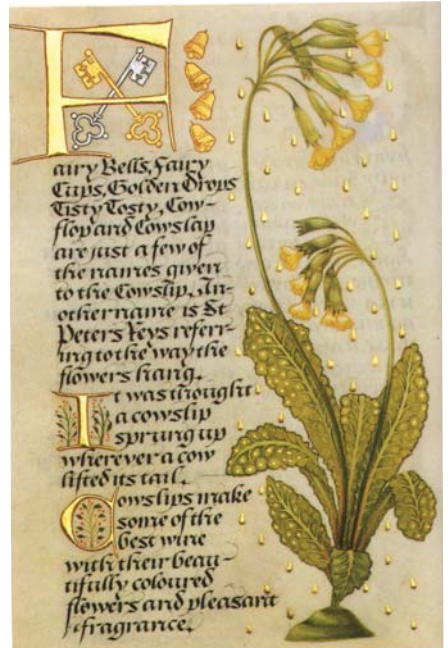 F
airy Bells, Fairy
Cups, Golden Drops
Tisty Tosty, Cow-
flop and Cowslap
are just a few of
the names given
to the Cowslip. An-
other name is St
Peters Keys referr-
ing to the way the
flowers hang.
It was thought
a cowslip
sprung up
wherever a cow
lifted its tail.
Cowslips make
some of the
best wine
with their beau-
tifully coloured
flowers and pleasant
fragrance.